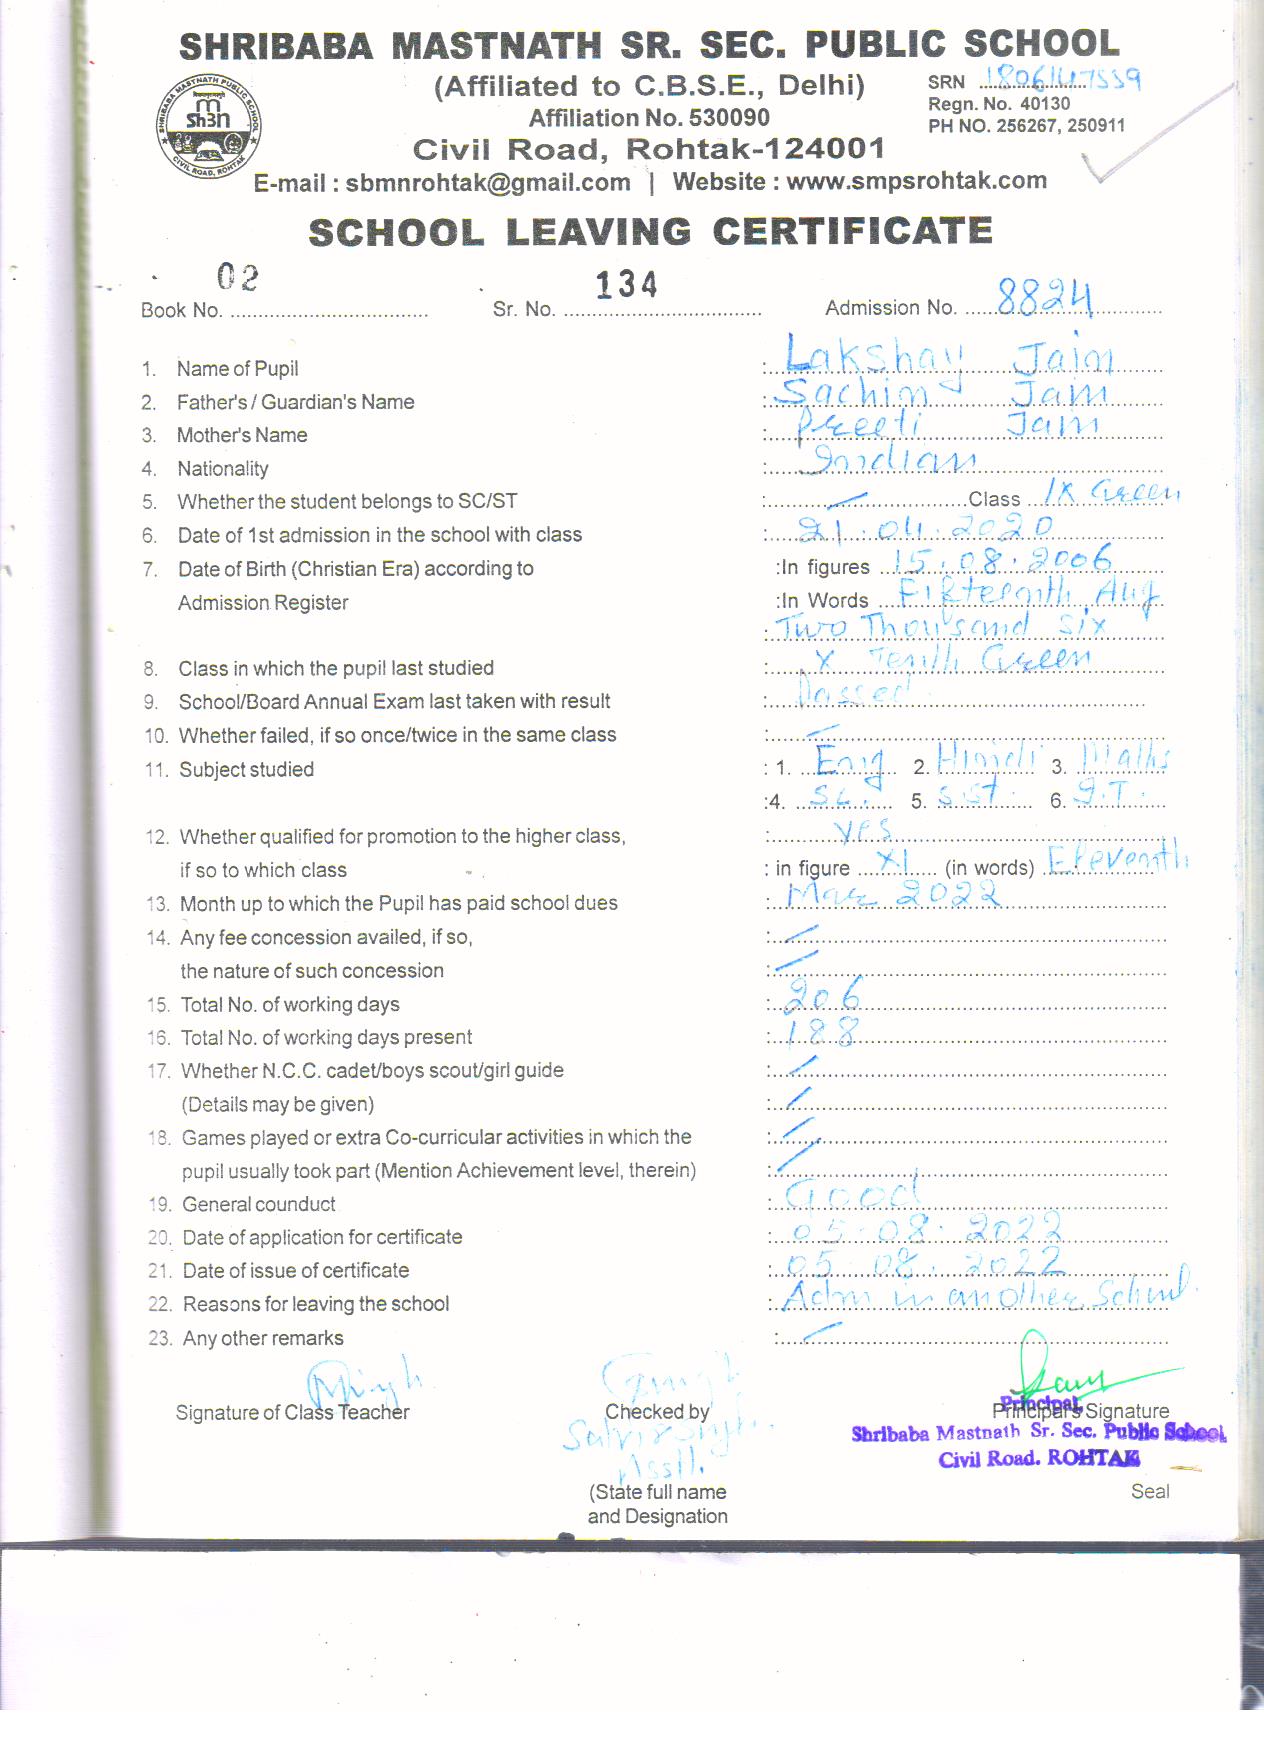 SHRIBABA MASTNATH SR. SEC. PUBLIC SCHOOL
(Affiliated to C.B.S.E., Delhi)
SRN 1806147559
Affiliation No. 530090
Regn. No. 40130
PH NO. 256267, 250911
Civil Road, Rohtak-124001
E-mail : sbmnrohtak@gmail.com | Website : www.smpsrohtak.com
SHRIBABA MASTNATH PUBLIC SCHOOL
CIVIL ROAD, ROHTAK
SCHOOL LEAVING CERTIFICATE
Book No. 02 Sr. No. 134 Admission No. 8824
1. Name of Pupil : Lakshay Jain
2. Father's / Guardian's Name : Sachin Jain
3. Mother's Name : Preeti Jain
4. Nationality : Indian
5. Whether the student belongs to SC/ST : Class IX Green
6. Date of 1st admission in the school with class : 21.04.2020
7. Date of Birth (Christian Era) according to :In figures 15.08.2006
Admission Register :In Words Fifteenth Aug
: Two Thousand Six
8. Class in which the pupil last studied : X Tenth Green
9. School/Board Annual Exam last taken with result : Passed
10. Whether failed, if so once/twice in the same class :
11. Subject studied : 1. Eng 2. Hindi 3. Maths
:4. Sc. 5. S.St. 6. I.T.
12. Whether qualified for promotion to the higher class, : yes
if so to which class : in figure XI (in words) Eleventh
13. Month up to which the Pupil has paid school dues : Mar 2022
14. Any fee concession availed, if so, :
the nature of such concession :
15. Total No. of working days : 206
16. Total No. of working days present : 188
17. Whether N.C.C. cadet/boys scout/girl guide :
(Details may be given) :
18. Games played or extra Co-curricular activities in which the :
pupil usually took part (Mention Achievement level, therein) :
19. General counduct : Good
20. Date of application for certificate : 05.08.2022
21. Date of issue of certificate : 05.08.2022
22. Reasons for leaving the school : Adm in another School.
23. Any other remarks :
Signature of Class Teacher Checked by Principal's Signature
Principal
Shribaba Mastnath Sr. Sec. Public School
Civil Road. ROHTAK
(State full name Seal
and Designation